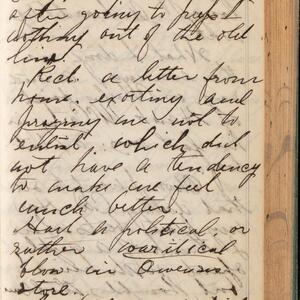 after going to press
nothing out of the old
line.
Recd. a letter from
home. exorting and
praying me not to
enlist. which did
not have a tendency
to make me feel
much better
Had a political, or
rather waritical
blow in Owens
store.